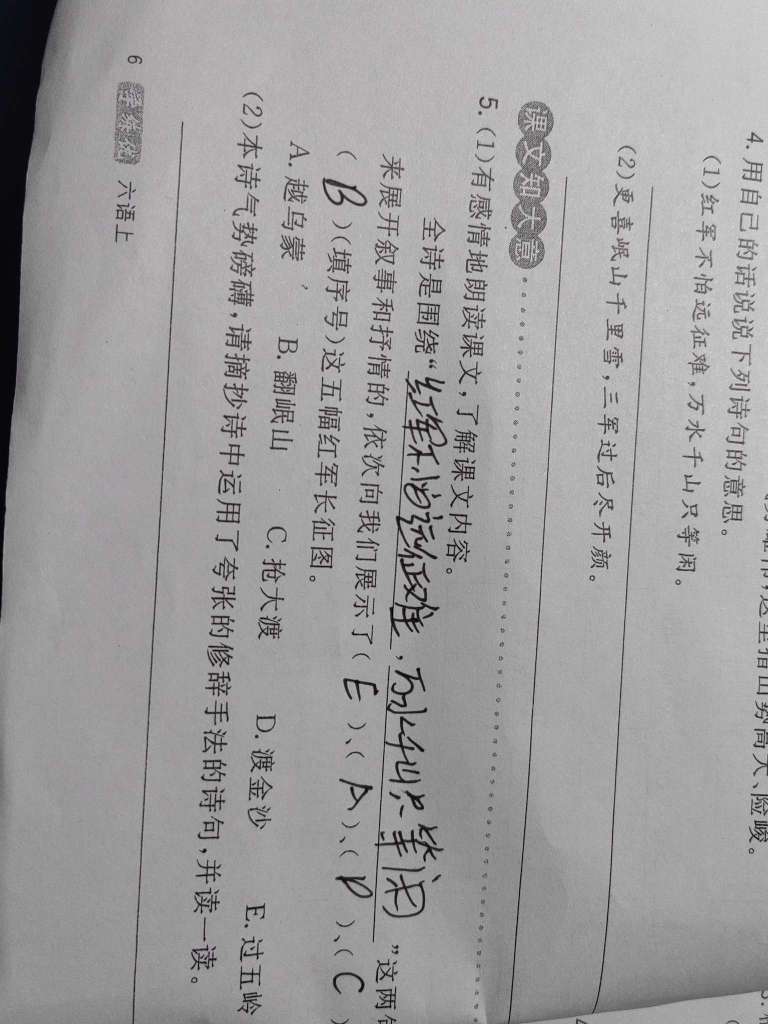 4.用自己的话说说下列诗句的意思。
(1)红军不怕远征难,万水千山只等闲。
(2)更喜岷山千里雪,三军过后尽开颜。
课文知大意
5.(1)有感情地朗读课文,了解课文内容。
全诗是围绕“红军不怕远征难,万水千山只等闲”这两
来展开叙事和抒情的,依次向我们展示了(E)、(A)、(D)、(C)
(B)(填序号)这五幅红军长征图。
A.越乌蒙 B.翻岷山 C.抢大渡 D.渡金沙 E.过五岭
(2)本诗气势磅礴,请摘抄诗中运用了夸张的修辞手法的诗句,并读一读。
6 六语上